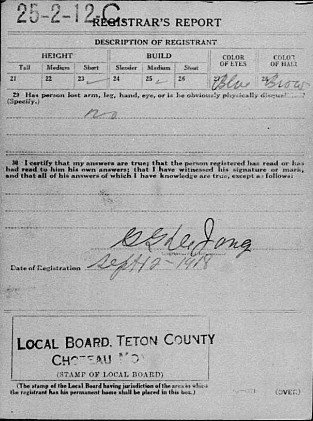 25-2-12 C
REGISTRAR'S REPORT
DESCRIPTION OF REGISTRANT
HEIGHT BUILD COLOR OF EYES COLOR OF HAIR
Tall Medium Short Slender Medium Stout
21 22 23 24 25 26 27 Blue 28 Brown
29 Has person lost arm, leg, hand, eye, or is he obviously physically
(Specify.)
no
30 I certify that my answers are true; that the person registered has read or has
had read to him his own answers; that I have witnessed his signature or mark,
and that all of his answers of which I have knowledge are true, except as follows:
De Jong
Date of Registration Sept 10-1918
LOCAL BOARD, TETON COUNTY
CHOTEAU
(STAMP OF LOCAL BOARD)
(The stamp of the Local Board having jurisdiction of the area in which
the registrant has his permanent home shall be placed in this box.)
(OVER)